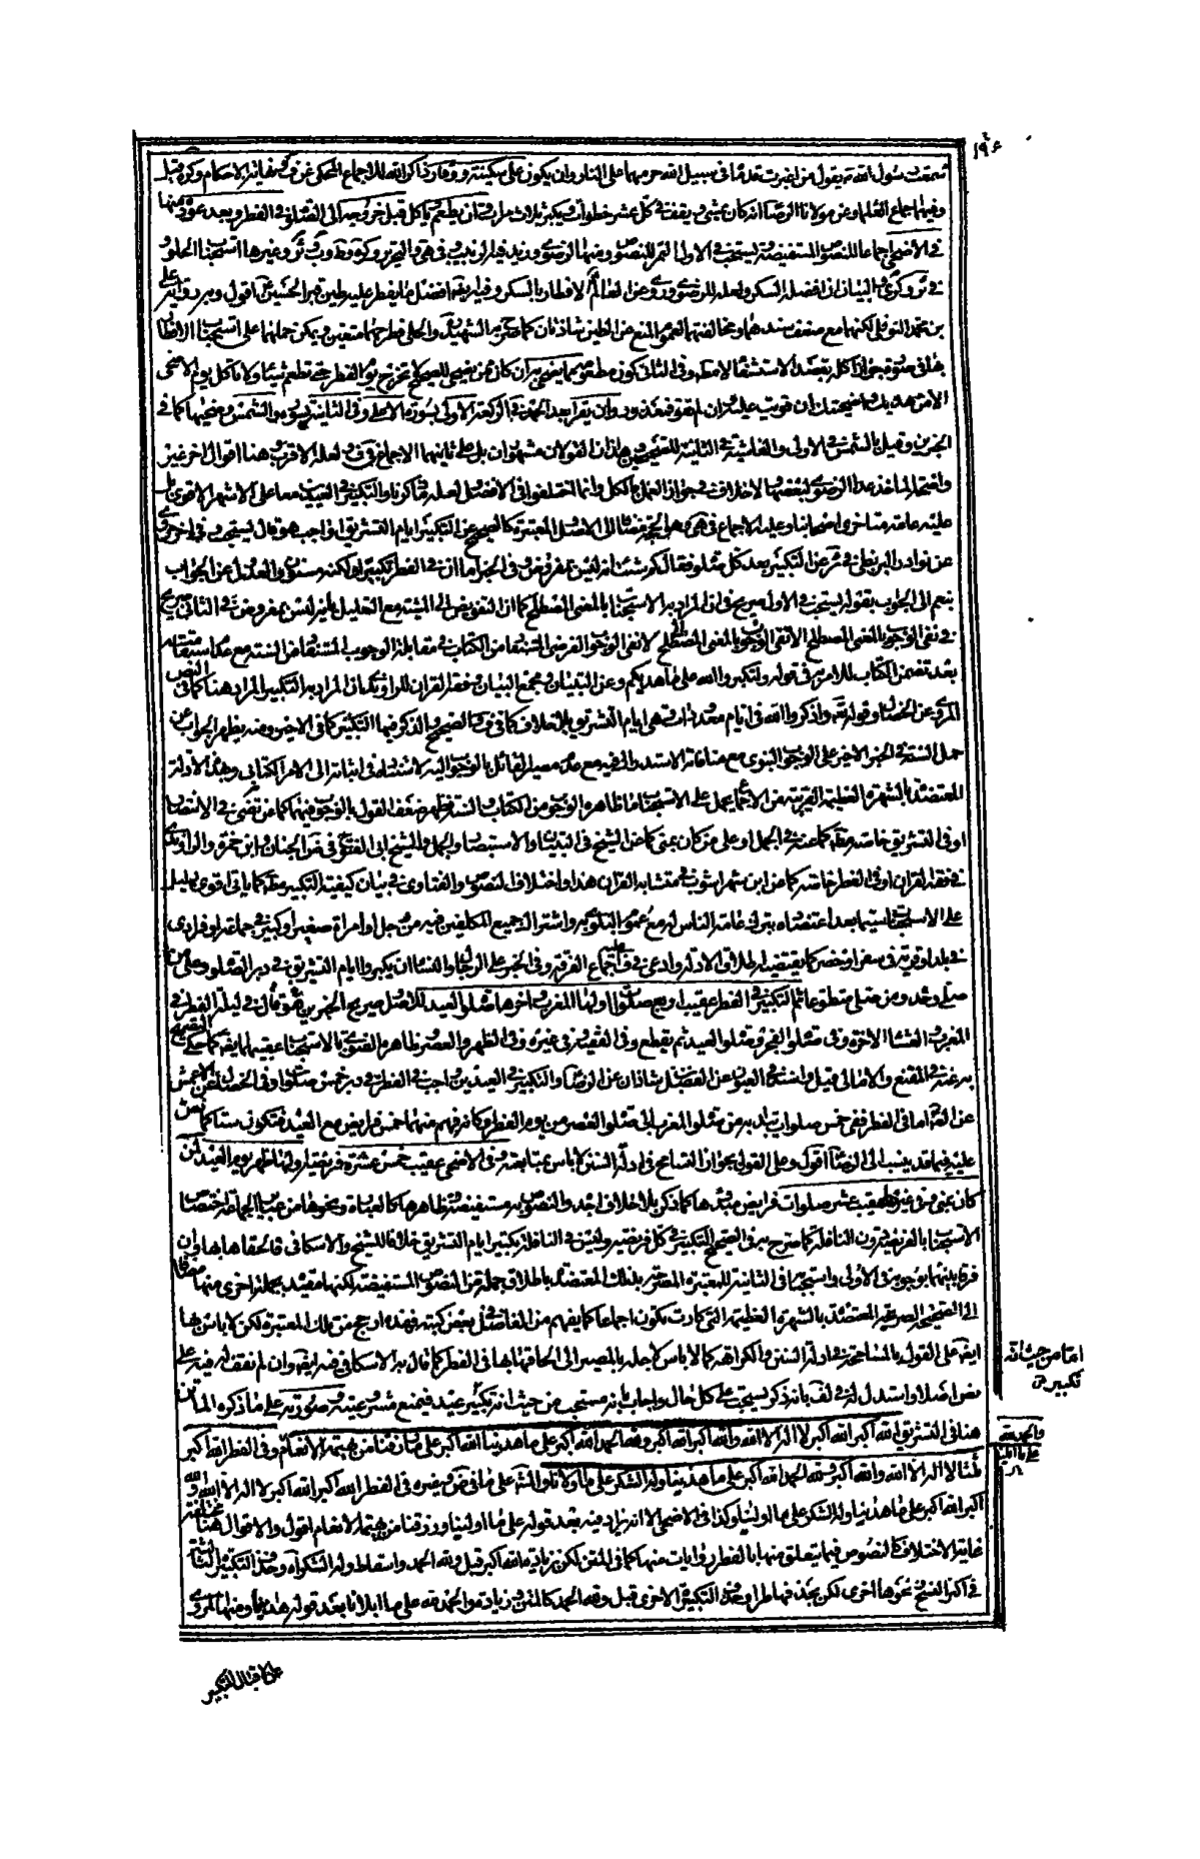 ١٩٤
سمعت رسول الله يقول من اغبرت قدماه في سبيل الله حرمهما على النار وان يكون على سكينة ووقار ذاكرا لله للاجماع المحكي عن
وفيهما اجماع العلماء وعن مولانا الرضا انه كان يمشي ويقف في كل عشر خطوات ويكبر ثلث مرات وان يطعم ياكل قبل خروجه الى الصلوة في الفطر وبعد عوده منها
في الاضحى اجماعا للنصوص المستفيضة يستحب في الاول التمر للنصوص ومنها الرضوي وزيد فيه الزبيب في وغيرها استحباب الحلو
في وكري البيان ان افضله السكر ولعله للرضوي وروي عن العالم الافطار بالسكر وفيه ايضا افضل ما يفطر عليه طين قبر الحسين اقول وبه رواية علي
بن محمد النوفلي لكنهما مع ضعف سندهما ومخالفتهما لعموم المنع عن الطين شاذتان كما صرح به الشهيد والحلي فطرحهما متعين ويمكن حملهما على استحباب الافطار
بها في صورة جواز اكله بقصد الاستشفاء لا مطلقا وفي الثاني كون مطعومه مما يضحي به ان كان ممن يضحي للصحيح لا تخرج يوم الفطر حتى تطعم شيئا ولا تاكل يوم الاضحى
الا من هديك واضحيتك ان قويت عليه وان لم تقو فمعذور وان يقرا بعد الحمد في الركعة الاولى بسورة الاعلى وفي الثانية بسورة والشمس وضحيها كما في
الخبرين وقيل بالشمس في الاولى والغاشية في الثانية للصحيحين وهذان القولان مشهوران بل على ثانيهما الاجماع في ولعله الاقرب وهنا اقوال اخر غير
واضحة الماخذ عدا الرضوي لبعضها ولا خلاف في جواز العمل بالكل وانما اختلفوا في الافضل لعله ما ذكرنا والتكبير في العيدين معا على الاشهر الاقوى بل
عليه عامة متاخري اصحابنا وعليه الاجماع في التفاتا الى الاصل المعتبرة كالصحيح عن التكبير ايام التشريق اواجب هو قال يستحب وفي اخر
عن نوادر البزنطي في عن التكبير بعد كل صلوة فقال كم شئت انه ليس بمفروض وفي الخبر اما ان في الفطر تكبيرا ولكنه مسنون والعدول عن الجواب
بنعم الى الجواب بقوله يستحب في الاول صريح في ان المراد به الاستحباب بالمعنى المصطلح كما ان التفويض الى المشية مع التعليل بانه ليس بمفروض في الثاني صريح
في نفي الوجوب بالمعنى المصطلح لا نفي الوجوب الفرضي المستفاد من الكتاب في مقابلة الوجوب المستفاد من السنة مع عدم استقامته
بعد تضمن الكتاب للامر به في قوله ولتكبروا الله على ما هديكم وعن التبيان ومجمع البيان وفقه القران للراوندي ان المراد به التكبير المراد هنا كما في النص
المروي عن الخصال وقوله تعالى واذكروا الله في ايام معدودات هي ايام التشريق بلا خلاف كما في والصحيح والذكر فيها التكبير كما في الاخير ومنه يظهر الجواب عن
حمل السنة في الخبر الاخير على الوجوب النبوي مع منافاته الاستدراك فيه مع عدم مصير القائل بالوجوب اليه لاستناده في اثباته الى الامر الكتابي وبهذه الادلة
المعتضدة بالشهرة العظيمة القريبة من الاجماع يحمل على الاستحباب ما ظاهره الوجوب من الكتاب والسنة فظهر ضعف القول بالوجوب فيهما كما عن المرتضى في الانتصار
او في التشريق خاصة مطلقا كما عنه في الجمل او على من كان بمنى كما عن الشيخ في التبيان والاستبصار والجمل والشيخ ابي الفتوح في روض الجنان وابن حمزة والراوندي
في فقه القران او في الفطر خاصة كما عن ابن شهراشوب في متشابه القران هذا واختلاف النصوص والفتاوى في بيان كيفية التكبير مطلقا كما ياتي اقوى دليل
على الاستحباب سيما بعد اعتضاده بترك عامة الناس له مع عموم البلوى به واشتراك جميع المكلفين فيه من رجل او امراة صغير او كبير في جماعة او فرادى
في بلد او قرية في سفر او حضر كما يقتضيه اطلاق الادلة وادعى في عليه اجماع الفرقة وفي الخبر على الرجال والنساء ان يكبروا ايام التشريق في دبر الصلوة وعلى من
صلى وحده ومن صلى متطوعا ثم التكبير في الفطر عقيب اربع صلوات اولها المغرب واخرها صلوة العيد للاصل وصريح الخبرين ففي قال في ليلة الفطر في
المغرب والعشاء الاخرة وفي صلوة الفجر وصلوة العيد ثم يقطع وفي الفقيه وفي غيره وفي الظهر والعصر وظاهره الفتوى بالاستحباب عقيبهما ايضا كما حكى التصريح
به عنه في المقنع والامالي قيل واسند في العيون عن الفضل بن شاذان عن الرضا والتكبير في العيدين واجب في الفطر في دبر خمس صلوات وفي الخصال عن الاعمش
عن الصادق اما في الفطر ففي خمس صلوات يبتدا به من صلوة المغرب الى صلوة العصر من يوم الفطر وكانه فهم منهما خمس فرايض مع العيد فتكون ستا كما نص
عليه فيما قد ينسب الى الرضا اقول وعلى القول بجواز التسامح في ادلة السنن لا باس بمتابعته وفي الاضحى عقيب خمس عشرة فريضة اولها ظهر يوم العيد لمن
كان بمنى وفي غيرها عقيب عشر صلوات فرايض مبدءها كما ذكر بلا خلاف اجده والنصوص به مستفيضة ظاهرها كالعبارة ونحوها من عبارات الجماعة اختصاص
الاستحباب بالفريضة دون النافلة كما صرح به في الصحيح التكبير في كل فريضة وليس في النافلة تكبير ايام التشريق خلافا للشيخ والاسكافي فالحقاها بها وان
فرقا بينهما بوجوبه في الاولى واستحبابه في الثانية للمعتبرة المصرحة بذلك المعتضدة باطلاق جملة من النصوص المستفيضة لكنها مقيدة بجملة اخرى منها مضافا
الى الصحيح الصريح المعتضدة بالشهرة العظيمة التي كادت تكون اجماعا كما يفهم من الفاضل في بعض كتبه فهذه ارجح من تلك المعتبرة لكن لا باس بها
ايضا على القول بالمسامحة في ادلة السنن والكراهة كما لا باس لاجله بالمصير الى الحاقها بها في الفطر كما قال به الاسكافي فيه ايضا وان لم نقف له فيه على
نص اصلا واستدل له في لف بانه ذكر يستحب على كل حال واجاب بانه مستحب من حيث انه تكبير عيد فيمنع مشروعيته وصورته على ما ذكره الماتن
هنا في التشريق الله اكبر الله اكبر لا اله الا الله والله اكبر الله اكبر ولله الحمد الله اكبر على ما هدينا الله اكبر على ما رزقنا من بهيمة الانعام وفي الفطر الله اكبر
ثلثا لا اله الا الله والله اكبر ولله الحمد الله اكبر على ما هدينا وله الشكر على ما اولانا
اكبر الله اكبر على ما هدينا وله الشكر على ما اولينا وكذا في الاضحى الا انه زاد فيه بعد قوله على ما اولينا ورزقنا من بهيمة الانعام اقول والاقوال هنا مختلفة
غاية الاختلاف كالنصوص فيما يتعلق منها بالفطر روايات منها كما في المتن لكن بزيادة الله اكبر قبل ولله الحمد واسقاط وله الشكر اه وحذف التكبير الثالث
في اكثر النسخ ونحوها اخرى لكن بحذف وحذف التكبيرة الاخرى قبل ولله الحمد كالمتن وزيادة والحمد لله على ما ابلانا بعد قوله هدينا ومنها المروي
اما من حيث انه
تكبير
والحمد لله
على ما ابلانا
عن الاقبال التكبير